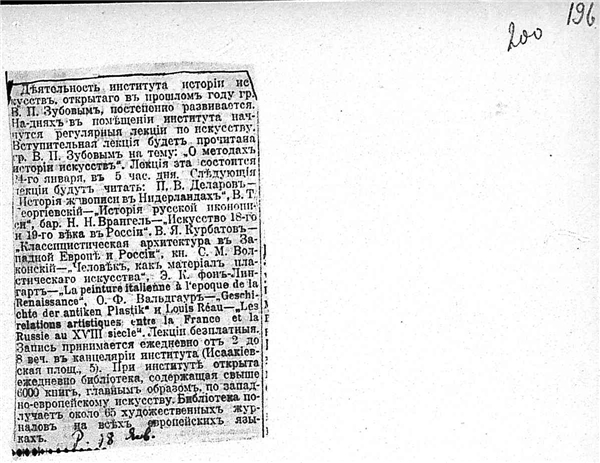 196
200
Дѣятельность института исторіи ис-
кусствъ, открытаго въ прошломъ году гр.
В. П. Зубовымъ, постепенно развивается.
На-дняхъ въ помѣщеніи института нач-
нутся регулярныя лекціи по искусству.
Вступительная лекція будетъ прочитана
гр. В. П. Зубовымъ на тему: „О методахъ
исторіи искусствъ". Лекція эта состоится
14-го января, въ 5 час. дня. Слѣдующія
лекціи будутъ читать: П. В. Деларовъ—
„Исторія живописи въ Нидерландахъ", В. Т.
Георгіевскій—„Исторія русской иконопи-
си", бар. Н. Н. Врангель—„Искусство 18-го
и 19-го вѣка въ Россіи", В. Я. Курбатовъ—
„Классицистическая архитектура въ За-
падной Европѣ и Россіи", кн. С. М. Вол-
конскій—„Человѣкъ, какъ матеріалъ пла-
стическаго искусства", Э. К. фонъ-Лип-
гартъ—„La peinture italienne à l'epoque de la
Renaissance", О. Ф. Вальдгауръ—„Geschi-
chte der antiken Plastik" и Louis Réau—„Les
relations artistiques entre la France et la
Russie au XVIII siecle". Лекціи безплатныя.
Запись принимается ежедневно отъ 2 до
8 веч. въ канцеляріи института (Исаакіев-
ская площ., 5). При институтѣ открыта
ежедневно библіотека, содержащая свыше
6000 книгъ, главнымъ образомъ, по запад-
но-европейскому искусству. Библіотека по-
лучаетъ около 65 художественныхъ жур-
наловъ на всѣхъ европейскихъ язы-
кахъ.
Р. 18 Янв.